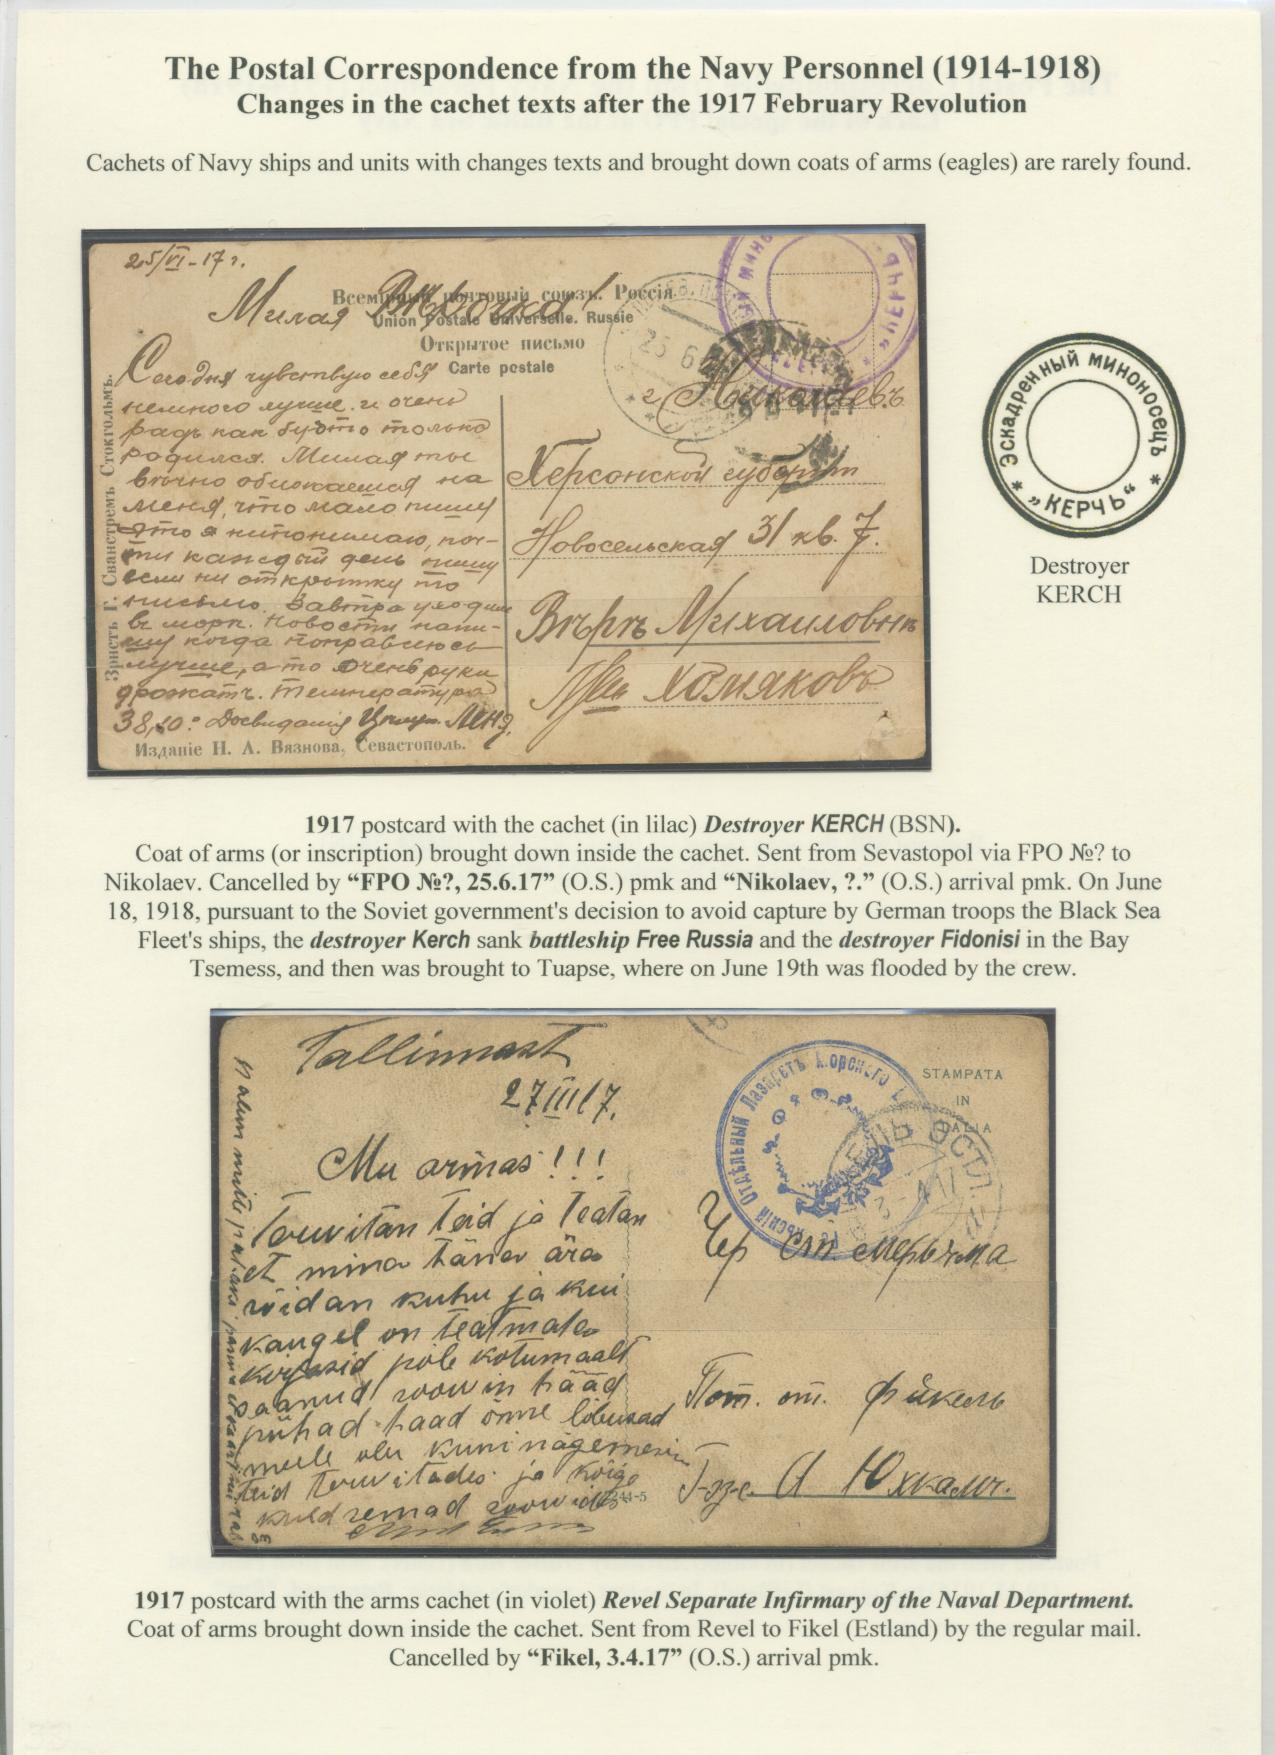 The Postal Correspondence from the Navy Personnel (1914-1918)
Changes in the cachet texts after the 1917 February Revolution
Cachets of Navy ships and units with changes texts and brought down coats of arms (eagles) are rarely found.
25/VI-17 г.
Милая Вѣрочка!
Всемірный почтовый союзъ. Россія.
Union Postale Universelle. Russie
Открытое письмо
Carte postale
Сегодня чувствую себя
немного лучше и очень
радъ как будто только
родился. Милая ты
вѣчно обижаешся на
меня, что мало пишу
это я непонимаю, поч-
ти каждый день пишу
если ни открытку то
письмо. Завтра уходим
в море. Новости напи-
шу когда поправлюсь
лучше, а то очень руки
дрожатъ. Температура
38,10: Досвидания
Эрнстъ Г. Сванстремъ Стокгольмъ.
Изданіе Н. А. Вязнова, Севастополь.
25 6
г. Николаевъ
Херсонской губерн
Новосельская 31 кв. 7.
Вѣрѣ Михаиловнѣ
Хомяковъ
Эскадренный миноносецъ
* „КЕРЧЬ“ *
Destroyer
KERCH
1917 postcard with the cachet (in lilac) Destroyer KERCH (BSN).
Coat of arms (or inscription) brought down inside the cachet. Sent from Sevastopol via FPO №? to
Nikolaev. Cancelled by “FPO №?, 25.6.17” (O.S.) pmk and “Nikolaev, ?.” (O.S.) arrival pmk. On June
18, 1918, pursuant to the Soviet government's decision to avoid capture by German troops the Black Sea
Fleet's ships, the destroyer Kerch sank battleship Free Russia and the destroyer Fidonisi in the Bay
Tsemess, and then was brought to Tuapse, where on June 19th was flooded by the crew.
Tallinnast
27 III 17.
Mu armas!!!
Terwitan Teid ja Teatan
et mina täna ära
sõidan kuhu ja kui
kaugel on teatmata
kirjasid pole kotumaalt
saanud soowin hääd
pühad haad õnne lõbusad
meele olu kuni nägemiseni
Teid terwitades ja kõige
kuldsemad soowides
Отдѣльный Лазаретъ Морского
STAMPATA
IN
ITALIA
Чер ст мерьяма
Пот. от. Фикель
Г-зе. А Юхкамъ.
1917 postcard with the arms cachet (in violet) Revel Separate Infirmary of the Naval Department.
Coat of arms brought down inside the cachet. Sent from Revel to Fikel (Estland) by the regular mail.
Cancelled by “Fikel, 3.4.17” (O.S.) arrival pmk.